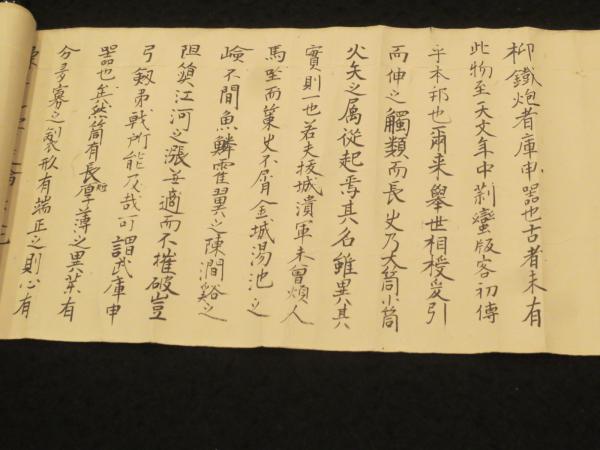 柳鐵炮者庫中器也古者未有
此物至天文年中剃蠻版客初傳
乎本邦也爾来舉世相授受引
而伸之觸類而長史乃大筒小筒
火矢之属從起焉其名雖異其
實則一也若夫拔城潰軍未曾煩人
馬至而策史不屑金城湯池之
嶮不閒魚鱗鸖翼之陳澗谿之
阻鎮江河之漲並適而不摧破豈
弓釼弟戟所能及哉可謂武庫中
器也並然筒有長短厚薄之異藥有
分多寡之製形有端正之則心有